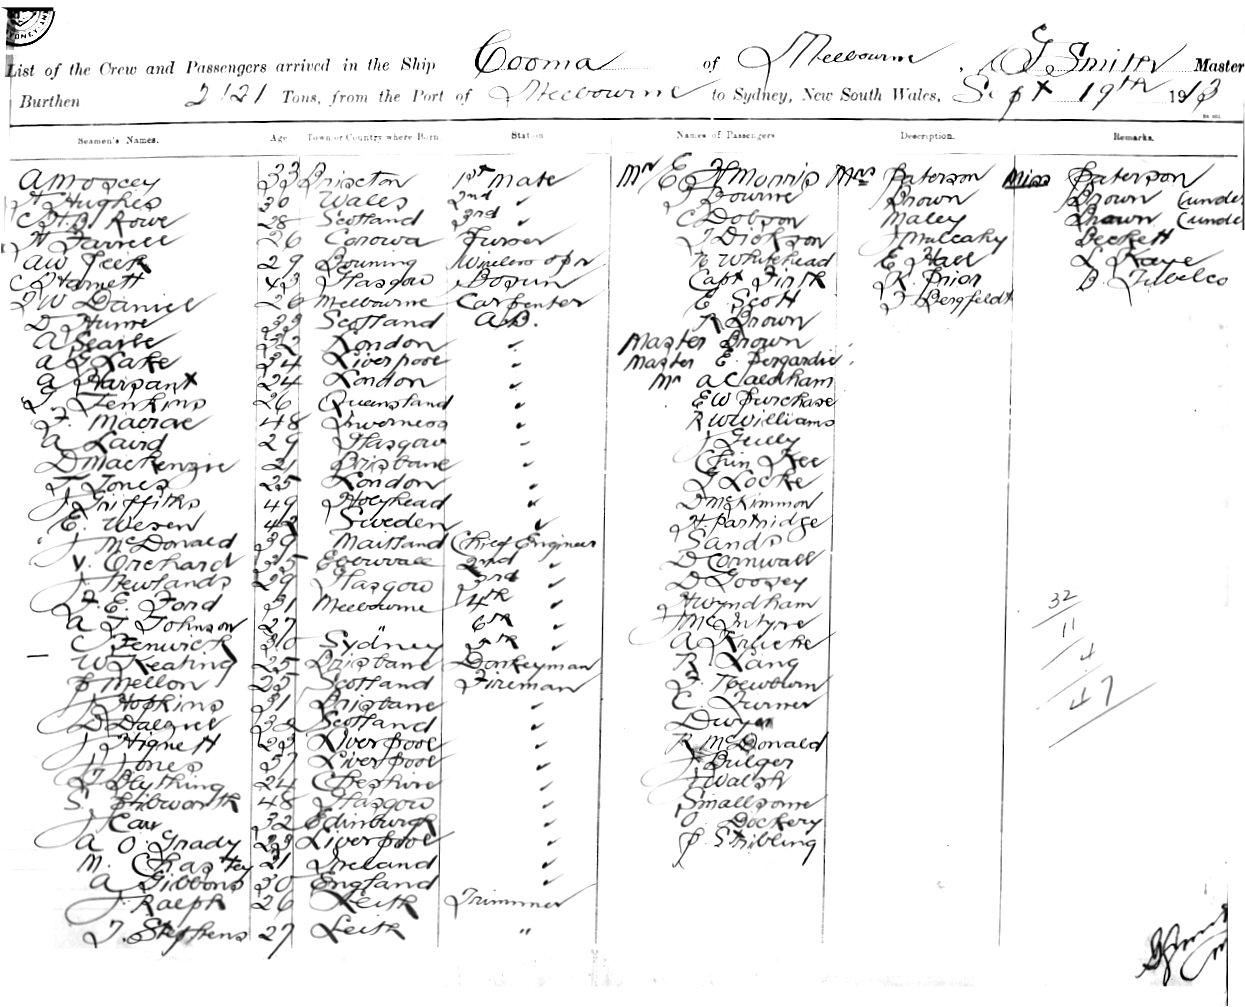 List of the Crew and Passengers arrived in the Ship Cooma of Melbourne, G Smith Master
Burthen 2121 Tons, from the Port of Melbourne to Sydney, New South Wales, Sept 19th 1913
Seamen's Names. Age Town or Country where Born Station Names of Passengers Description. Remarks.
A Moscey 33 Brixton 1st Mate Mr E H Morris Mrs Paterson Miss Paterson
H Hughes 30 Wales 2nd " J Bourne Brown Brown (unde
C H B Rowe 28 Scotland 3rd " C Dobson Maley Brown (unde
H Farrell 26 Corowa Purser J Dickson J Mulcahy Beckett
A W Peek 29 Bowning Wireless opr Whitehead E Hall L Kaye
C Harnett 43 Glasgow Bosun Capt Firth K Prior
J W Daniel 26 Melbourne Carpenter E Scott J Bergfeldt
D Hume 33 Scotland A.B. R Brown
A Searle 32 London " Master Brown
A G Lake 34 Liverpool " Master E.
A Harpant 24 London " Mr A Caldham
J. Jenkins 26 Queensland " E W Purchase
F. Macrae 48 Inverness " R W Williams
A Laird 29 Glasgow " J Gully
D Mackenzie 21 Brisbane " Chin Kee
J Jones 25 London " J Locke
J Griffiths 49 Holyhead " D McKimmon
E. Wesen 43 Sweden " H Partridge
J McDonald 39 Maitland Chief Engineer Sands
V. Orchard 35 2nd " D Cornwall
J Newlands 29 Glasgow 3rd " D Goosey
F. E. Ford 31 Melbourne 4th " H Wyndham 32
A J Johnson 27 " 6th " J McIntyre 11
C Fenwick 30 Sydney 5th " A 4
W Keating 25 Brisbane Donkeyman R Lang
P Mellon 25 Scotland Fireman F. Newburn 47
J Hopkins 31 Brisbane " C. Turner
D Dalziel 32 Scotland " Dwyer
J Hignett 23 Liverpool " R McDonald
J Jones 37 Liverpool " J Bulger
J Blything 24 Cheshire " J Walsh
S. 48 Glasgow " Smallsome
J Carr 32 Edinburgh " O. Dockery
A O. Grady 23 Liverpool " P Stribling
M. Chastey 21 Ireland "
A Gibbons 30 England "
J. Ralph 26 Leith Trimmer
J. Stephens 27 Leith "